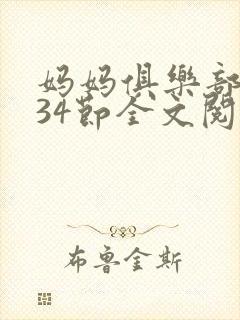 妈妈俱樂部
34節全文閱
布鲁金斯